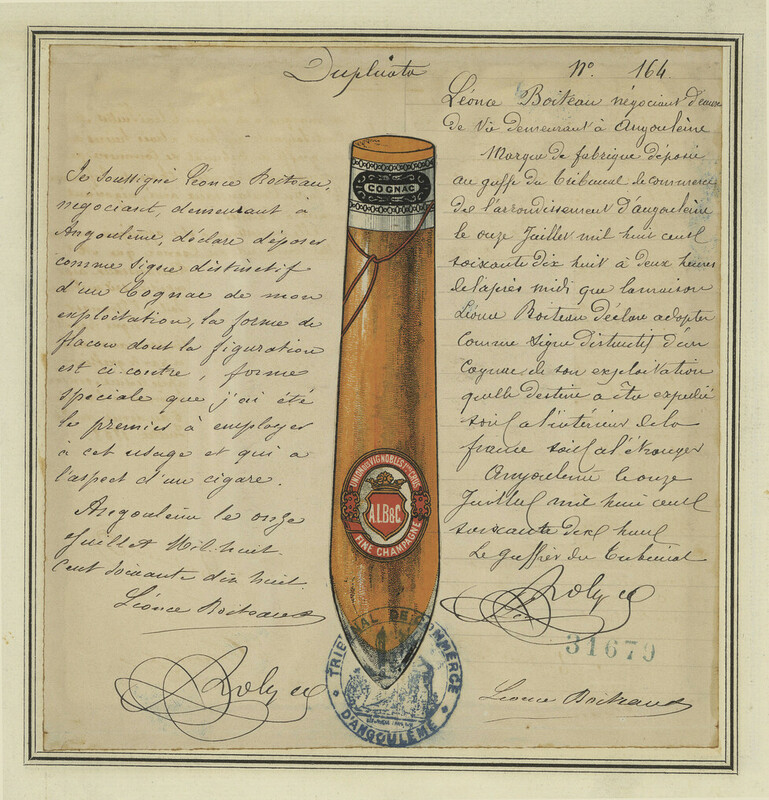 Duplicata
Je soussigné Léonce Boiteau,
négociant, demeurant à
Angoulême, déclare déposer
comme signe distinctif
d'un Cognac de mon
exploitation, la forme de
flacon dont la figuration
est ci-contre, forme
spéciale que j'ai été
le premier à employer
à cet usage et qui a
l'aspect d'un cigare.
Angoulême le onze
Juillet Mil huit
cent soixante dix huit.
Léonce Boiteau
COGNAC
UNION DES VIGNOBLES 1ers CRUS
A.L.B&C
FINE CHAMPAGNE
TRIBUNAL DE COMMERCE
D'ANGOULÊME
No. 164
Léonce Boiteau négociant d'eaux
de vie demeurant à Angoulême
Marque de fabrique déposée
au greffe du tribunal de commerce
de l'arrondissement d'angoulême
le onze Juillet mil huit cent
soixante dix huit à deux heures
de l'après midi que la maison
Léonce Boiteau déclare adopter
comme signe distinctif d'un
Cognac de son exploitation
qu'elle destine à être expédié
soit à l'intérieur de la
france soit à l'étranger
Angoulême le onze
Juillet mil huit cent
soixante dix huit
Le greffier du tribunal
31679
Léonce Boiteau